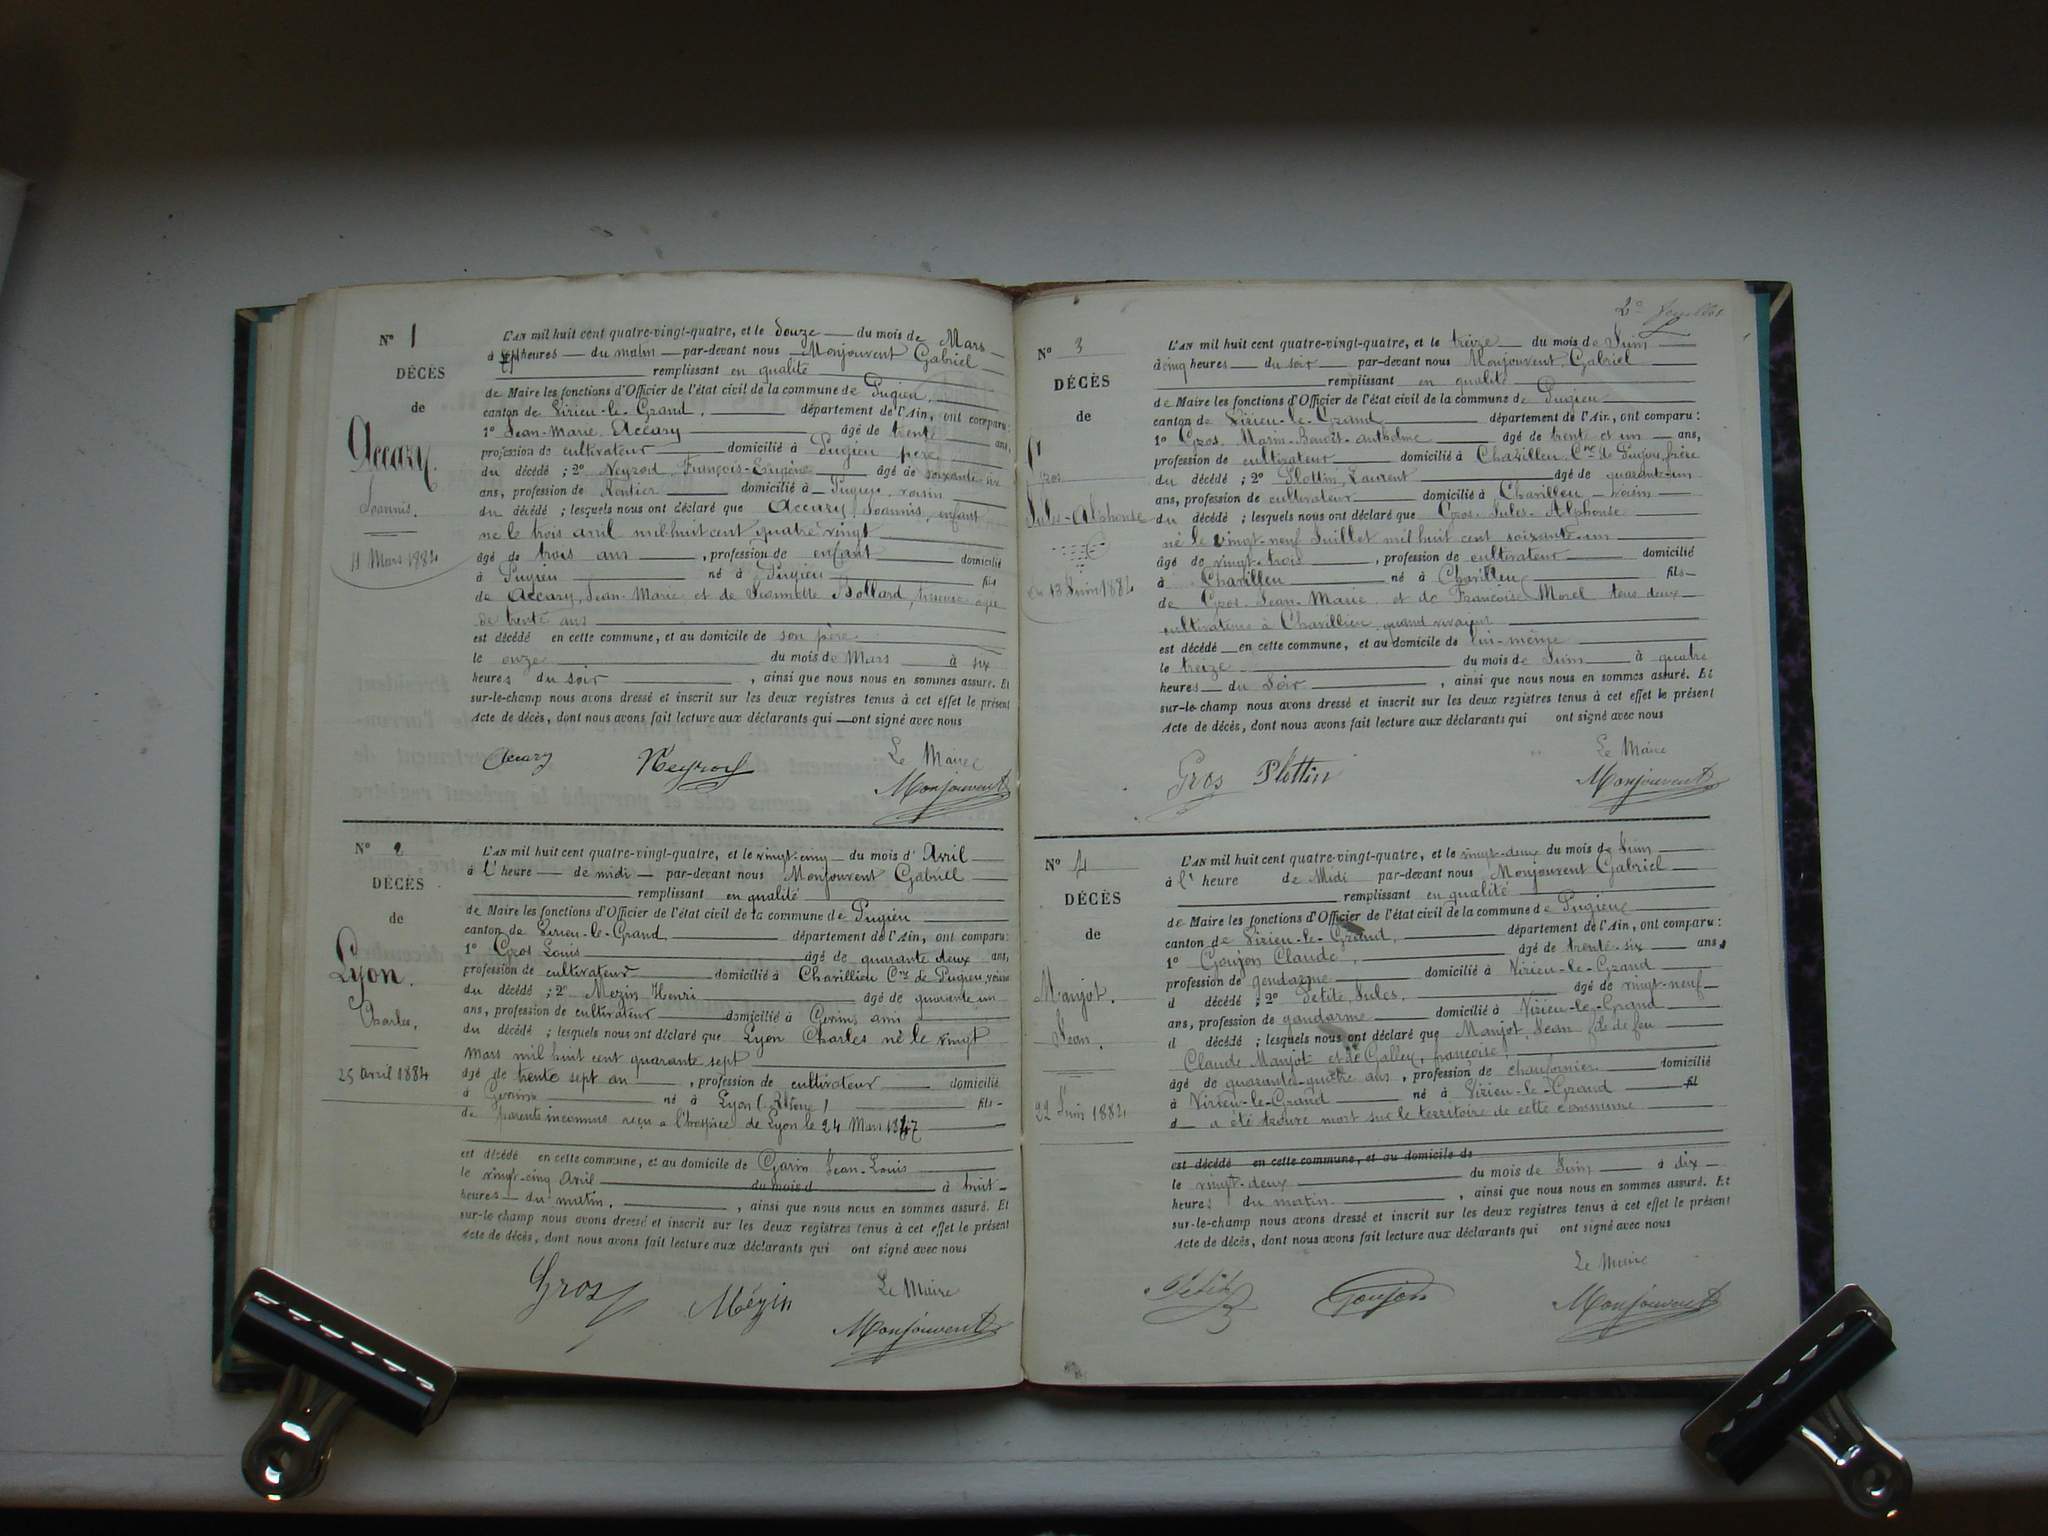 Nº 1
DÉCÈS
de
Accary.
Joannis.
11 Mars 1884
L'AN mil huit cent quatre-vingt-quatre, et le douze du mois de Mars
à heures du matin par-devant nous Monjouvent Gabriel
remplissant en qualité
de Maire les fonctions d'Officier de l'état civil de la commune de Pugieu,
canton de Virieu-le-Grand, département de l'Ain, ont comparu:
1º Jean-Marie Accary âgé de trente ans,
profession de cultivateur domicilié à Pugieu père
du décédé ; 2º Neyrod François-Eugène âgé de soixante-six
ans, profession de Rentier domicilié à Pugieu, voisin
du décédé ; lesquels nous ont déclaré que Accary Joannis, enfant
né le trois avril mil huit cent quatre vingt
âgé de trois ans , profession de enfant domicilié
à Pugieu né à Pugieu fils
de Accary, Jean-Marie et de Bollard, âgée
de trente ans
est décédé en cette commune, et au domicile de son père
le onze du mois de Mars à six
heures du soir , ainsi que nous nous en sommes assuré. Et
sur-le-champ nous avons dressé et inscrit sur les deux registres tenus à cet effet le présent
Acte de décès, dont nous avons fait lecture aux déclarants qui ont signé avec nous
Le Maire
Accary Neyrod Monjouvent
Nº 2
DÉCÈS
de
Lyon.
Charles,
25 avril 1884
L'AN mil huit cent quatre-vingt-quatre, et le vingt-cinq du mois d'Avril
à l'heure de midi par-devant nous Monjouvent Gabriel
remplissant en qualité
de Maire les fonctions d'Officier de l'état civil de la commune de Pugieu
canton de Virieu-le-Grand, département de l'Ain, ont comparu:
1º Gros Louis âgé de quarante deux ans,
profession de cultivateur domicilié à Chavillieu Cne de Pugieu, voisin
du décédé ; 2º Mezin Henri âgé de quarante un
ans, profession de cultivateur domicilié à ami
du décédé ; lesquels nous ont déclaré que Lyon Charles né le vingt
mars mil huit cent quarante sept
âgé de trente sept an , profession de cultivateur domicilié
à né à Lyon (Rhône) fils
de parents inconnus reçu a l'hospice de Lyon le 24 Mars 1847
est décédé en cette commune, et au domicile de Garin Jean-Louis
le vingt-cinq Avril du mois d à huit
heures du matin, , ainsi que nous nous en sommes assuré. Et
sur-le-champ nous avons dressé et inscrit sur les deux registres tenus à cet effet le présent
Acte de décès, dont nous avons fait lecture aux déclarants qui ont signé avec nous
Le Maire
Gros Mézin Monjouvent
2º feuillet
Nº 3
DÉCÈS
de
Gros
Jules-Alphonse
Du 13 Juin 1884
L'AN mil huit cent quatre-vingt-quatre, et le treize du mois de Juin
à cinq heures du soir par-devant nous Monjouvent Gabriel
remplissant en qualité
de Maire les fonctions d'Officier de l'état civil de la commune de Pugieu
canton de Virieu-le-Grand département de l'Ain, ont comparu:
1º Gros Marin-Benoît-anthelme âgé de trente et un ans,
profession de cultivateur domicilié à Chavilleu, Cne de Pugieu, frère
du décédé ; 2º Plottin, Laurent âgé de quarante-un
ans, profession de cultivateur domicilié à Chavilleu voisin
du décédé ; lesquels nous ont déclaré que Gros Jules-Alphonse
né le vingt-neuf Juillet mil huit cent soixante-un
âgé de vingt-trois , profession de cultivateur domicilié
à Chavilleu né à Chavilleu fils
de Gros Jean-Marie et de Françoise Morel tous deux
cultivateurs à Chavillieu quand vivaient
est décédé en cette commune, et au domicile de lui-même
le treize du mois de Juin à quatre
heures du Soir , ainsi que nous nous en sommes assuré. Et
sur-le-champ nous avons dressé et inscrit sur les deux registres tenus à cet effet le présent
Acte de décès, dont nous avons fait lecture aux déclarants qui ont signé avec nous
Le Maire
Gros Plottin Monjouvent
Nº 4
DÉCÈS
de
Manjot.
Jean.
22 Juin 1884
L'AN mil huit cent quatre-vingt-quatre, et le vingt-deux du mois de Juin
à l'heure de Midi par-devant nous Monjouvent Gabriel
remplissant en qualité
de Maire les fonctions d'Officier de l'état civil de la commune de Pugieu
canton de Virieu-le-Grand, département de l'Ain, ont comparu:
1º Goujon Claude, âgé de trente-six ans
profession de gendarme domicilié à Virieu-le-Grand
d décédé ; 2º Petit Jules, âgé de vingt-neuf
ans, profession de gendarme domicilié à Virieu-le-Grand
d décédé ; lesquels nous ont déclaré que Manjot, Jean fils de feu
Claude Manjot et de Galley, françoise
âgé de quarante-quatre ans, profession de chaufournier domicilié
à Virieu-le-Grand né à Virieu-le-Grand fil
d a été trouvé mort sur le territoire de cette commune
est décédé en cette commune, et au domicile de
le vingt-deux du mois de Juin à dix
heures du matin , ainsi que nous nous en sommes assuré. Et
sur-le-champ nous avons dressé et inscrit sur les deux registres tenus à cet effet le présent
Acte de décès, dont nous avons fait lecture aux déclarants qui ont signé avec nous
Le Maire
Petit Goujon Monjouvent